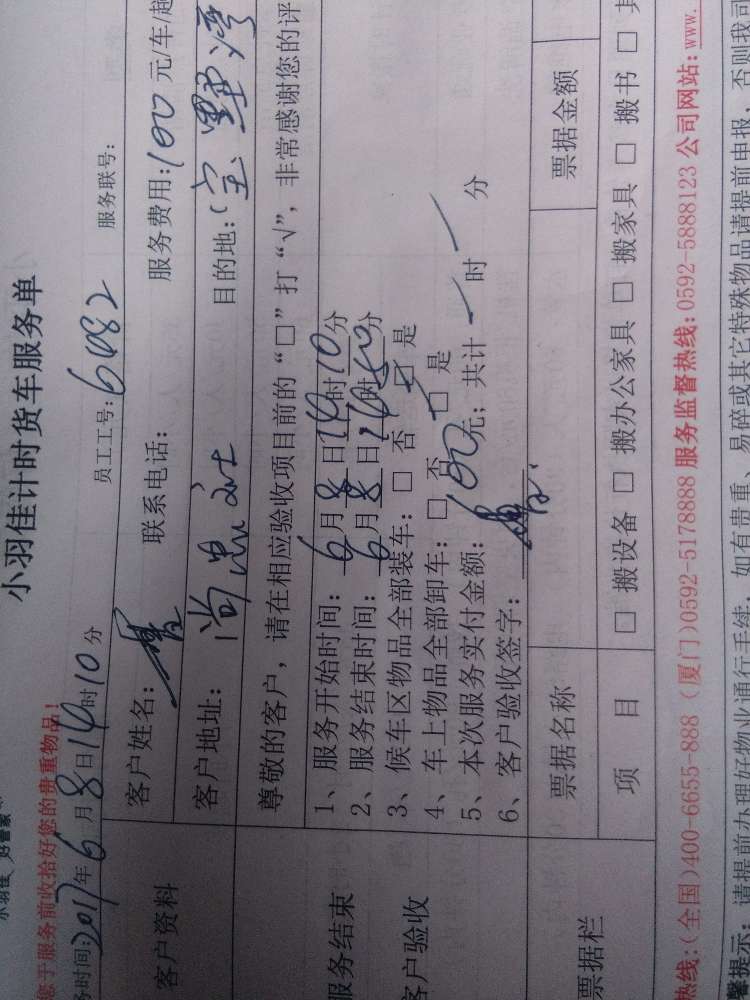 小羽佳 好管家
小羽佳计时货车服务单
您于服务前收拾好您的贵重物品!
务时间:2017年6月8日14时10分 员工工号: 6482 服务联号:
客户资料
客户姓名: 联系电话: 服务费用:100元/车/趟
客户地址: 尚忠社 目的地:(宝墅湾
敬的客户,请在相应验收项目前的“□”打“√”,非常感谢您的评
服务结束
客户验收
1、服务开始时间: 6月8日14时10分
2、服务结束时间: 6月8日14时50分
3、候车区物品全部装车:□ 否 ☑ 是
4、车上物品全部卸车:□ 否 □ 是
5、本次服务实付金额: 100元; 共计 / 时 / 分
6、客户验收签字:
票据栏
票据名称 票据金额
项 目 □ 搬设备 □ 搬办公家具 □ 搬家具 □ 搬书 □ 其
热线:(全国)400-6655-888 (厦门)0592-5178888 服务监督热线:0592-5888123 公司网站:www.
馨提示: 请提前办理好物业通行手续,如有贵重、易碎或其它特殊物品请提前申报,否则我司